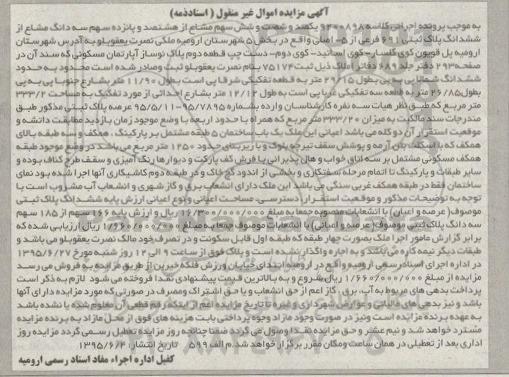 آگهی مزایده اموال غیر منقول ( اسنادذمه)
به موجب پرونده اجرائی کلاسه ۹۴۰۰۸۹۸ یکصد و شصت و شش سهم مشاع از هشتصد و پانزده سهم سه دانگ مشاع از
ششدانگ پلاک ثبتی ۶۹۱ فرعی از ۵- اصلی واقع در بخش ۵ شهرستان ارومیه ملکی نصرت یعقوبلو به آدرس شهرستان
ارومیه پل قویون کوی کلسار- کوی اساتید- کوی دوم- دست چپ قطعه دوم پلاک نوساز آپارتمان مسکونی که سند آن در
صفحه ۲۹۳ دفتر جلد ۶۸۹ دفاتر املاک ذیل ثبت ۷۵۱۷۴ بنام نصرت یعقوبلو ثبت وصادر شده است محدود به حدود
ششدانگ شمالا پی به پی بطول ۲۹/۱۵ متر به قطعه تفکیکی شرقا پی است بطول ۱۱/۹۰ متر بشارع جنوبا پی به پی
بطول ۲۶/۸۵ متر به قطعه سه تفکیکی غربا پی است به طول ۱۲/۱۲ متر بشارع احداثی از مورد تفکیک به مساحت ۳۳۳/۲
متر مربع که طبق نظر هیات سه نفره کارشناسان وارده بشماره ۹۵/۷۸۹۵-۹۵/۵/۱۱ عرصه پلاک ثبتی مذکور طبق
مندرجات سند مالکیت به میزان ۳۳۳/۲۰ متر مربع که همراه با حدود اربعه با وضع موجود زمان بازدید مطابقت داشته و
موقعیت استقرار آن دو کله می باشد اعیانی این ملک یک باب ساختمان ۵ طبقه مشتمل بر پارکینگ ، همکف و سه طبقه بالای
همکف که با اسکلت بتن آرمه و پوشش سقف تیرچه بلوک و با زیربنای حدود ۱۲۵۰ متر مربع می باشد در وضع موجود طبقه
همکف مسکونی مشتمل بر سه اتاق خواب و هال پذیرائی با فرش کف پارکت و دیوارها رنگ آمیزی و سقف طرح کناف بوده و
سایر طبقات و پارکینگ تا اتمام مرحله سفتکاری و بخشی از اندود گچ خاک و در طبقه دوم کاشیکاری آنها اجرا شده بود نمای
ساختمان فقط در طبقه همکف غربی سنگی می باشد این ملک دارای انشعاب برق و گاز شهری و انشعاب آب مشروب است با
توجه به توضیحات مذکور و موقعیت استقرار، دسترسی، مساحت اعیانی و نوع اعیانی ارزش پایه ششدانگ پلاک ثبتی
موصوف( عرصه و اعیان) با انشعابات منصوبه جمعا به مبلغ
سه دانگ پلاک ثبتی موصوف( عرصه و اعیانی) با انشعابات موصوف جمعا به مبلغ ۱/۶۶۰/۰۰۰/۰۰۰ ریال ارزیابی شده که
برابر گزارش مامور اجرا ملک بصورت چهار طبقه که طبقه اول قابل سکونت و در تصرف خود مالک نصرت یعقوبلو می باشد و
طبقات دیگر نیمه کاره می باشد و به اجاره واگذار نشده است و پلاک فوق از ساعت ۹ الی ۱۲ روز شنبه مورخ ۱۳۹۵/۶/۲۷
در اداره اجرای اسناد رسمی ارومیه واقع در ارومیه ابتدای خیابان ورزش فلکه خیرین از طریق مزایده به فروش می رسد
مزایده از مبلغ ۱/۶۶۰/۰۰۰/۰۰۰ ریال شروع و به بالاترین قیمت پیشنهادی نقدا فروخته می شود لازم به ذکر است
پرداخت بدهی های مربوط به آب، برق ، گاز اعم از حق انشعاب و یا حق اشتراک ومصرف در صورتی که مورد مزایده دارای آنها
باشد و نیز بدهی های مالیاتی و عوارض شهرداری و غیره تا تاریخ مزایده اعم از اینکه رقم قطعی آن معلوم شده یا نشده باشد
به عهده برنده مزایده است ونیز در صورت وجود مازاد وجوه پرداختی بابت هزینه های فوق از محل مازاد به برنده مزایده
مسترد خواهد شد و نیم عشر و حق مزایده نقدا وصول می گردد ضمنا چنانچه روز مزایده تعطیل رسمی گردد مزایده روز
اداری بعد از تعطیلی در همان ساعت ومکان مقرر برگزار خواهد شد. م الف ۵۹۹ تاریخ انتشار: ۱۳۹۵/۶/۲
کفیل اداره اجراء مفاد اسناد رسمی ارومیه